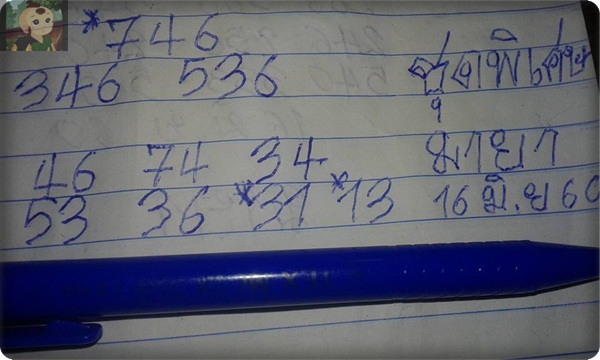 *746
346 536 ชุดพิเศษ
46 74 34 มายา
53 36 *31 *13 16 มิ.ย 60